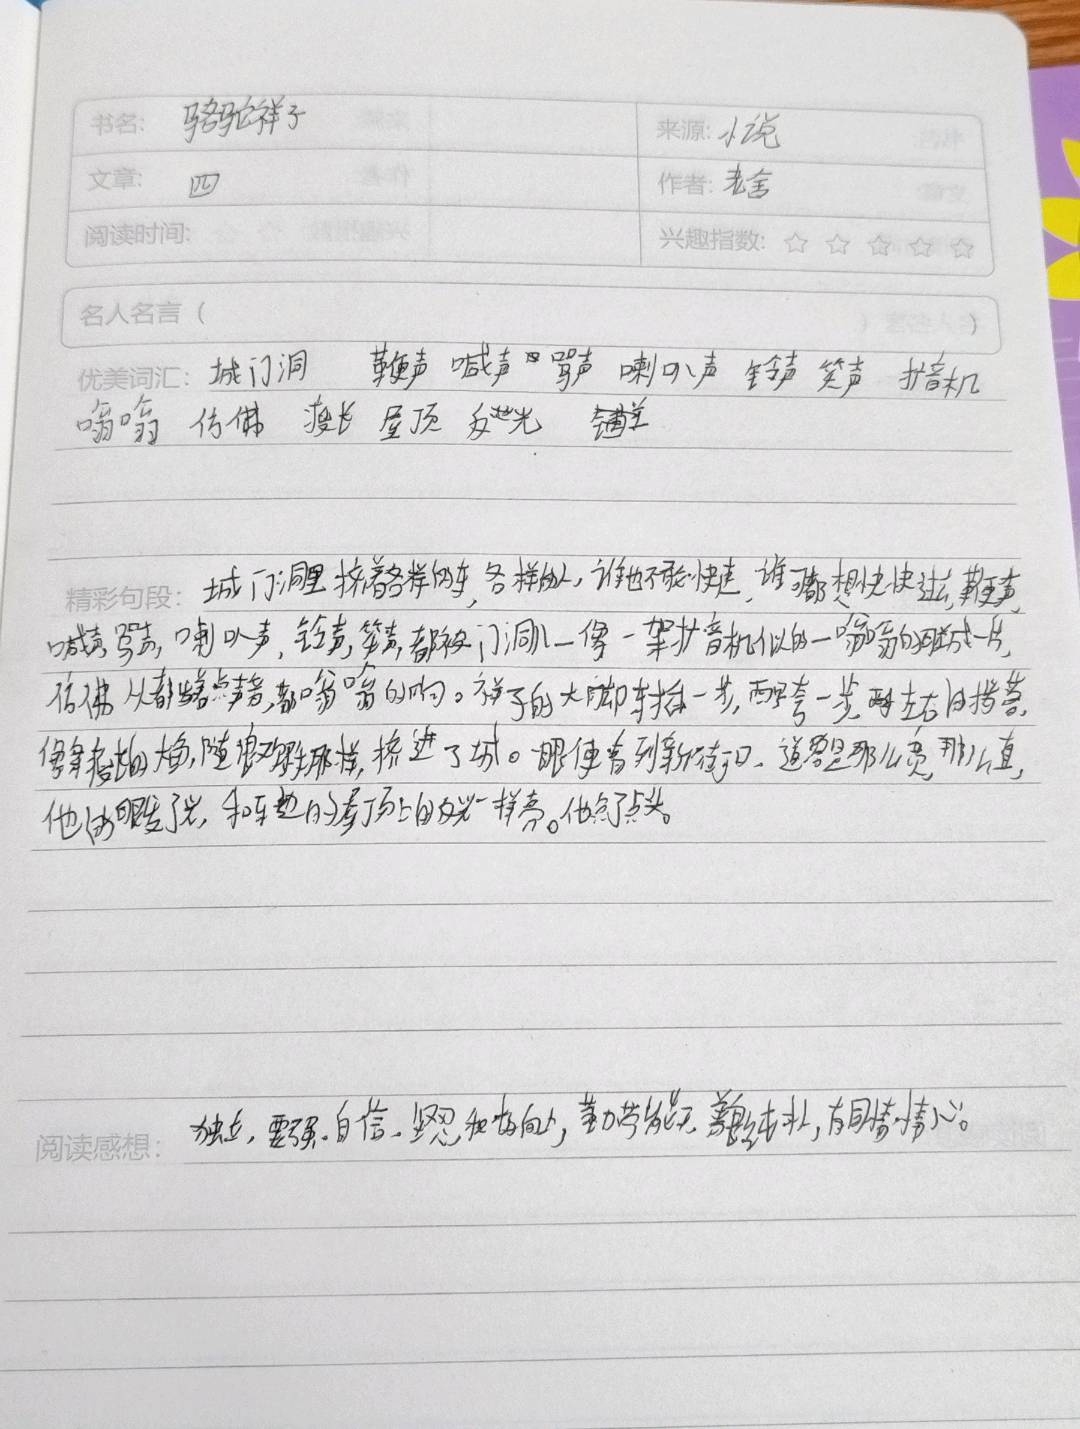 书名: 骆驼祥子 来源: 小说
文章: 四 作者: 老舍
阅读时间: 兴趣指数: ☆ ☆ ☆ ☆ ☆
名人名言 ( )
优美词汇: 城门洞 鞭声 喊声 骂声 喇叭声 铃声 笑声 扩音机
嗡嗡 仿佛 瘦长 屋顶 反光
精彩句段: 城门洞里挤着各样的车,各样的人,谁也不敢快走,谁可都想快快过去,鞭声,
喊声,骂声,喇叭声,铃声,笑声,都被门洞儿一像一架扩音机似的一嗡嗡的联成一片,
仿佛人都带着点声音,都嗡嗡的响。祥子的大脚东插一步,西跨一步,两手左右的拨落,
像条瘦长的大鱼,随浪欢跃那样,挤进了城。一眼便看到新街口,道路是那么宽,那么直,
他的眼发了光,和东边的屋顶上的反光一样亮。他点了点头。
阅读感想: 独立,要强、自信、坚忍和好向上,勤劳,有同情心。